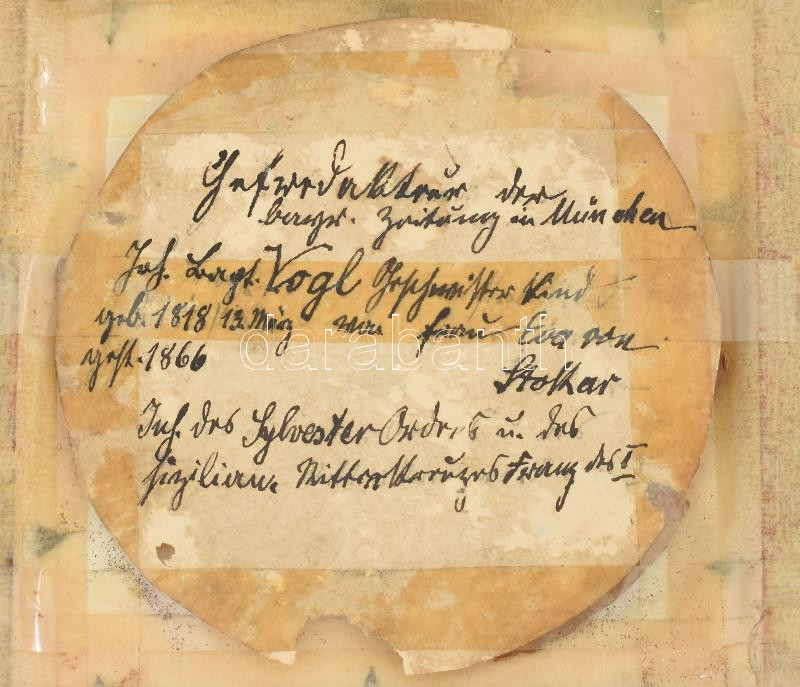 Chefredakteur der
bayr. Zeitung in München
Joh. Bapt. Vogl Geschwister Kind
geb. 1818/13. März von Frau Eva von
gest. 1866 Stokar
Inh. des Sylvester Ordens u. des
sizilian. Ritterkreuzes Franz des I
darabanth